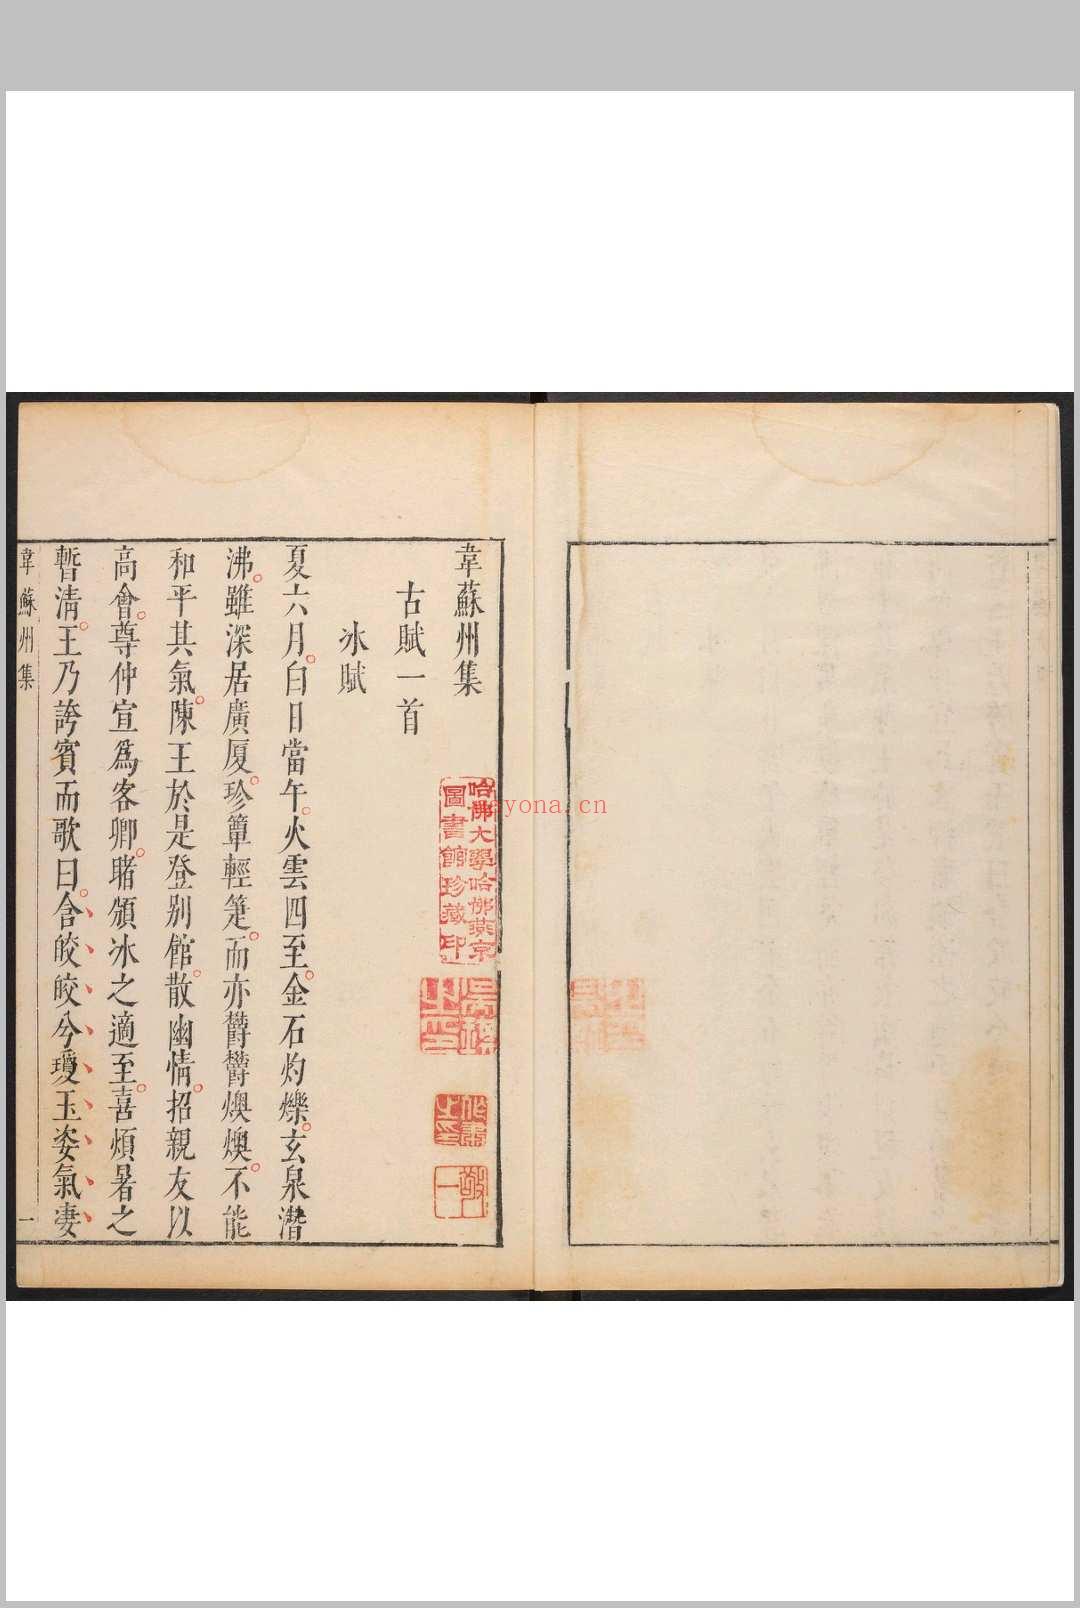 韋蘇州集
古賦一首
冰賦
夏六月。白日當午。火雲四至。金石灼爍。玄泉潛
沸。雖深居廣厦。珍簟輕箑。而亦鬱鬱燠燠。不能
和平其氣。陳王於是登别館。散幽情。招親友以
高會。尊仲宣爲客卿。睹頒冰之適至。喜煩暑之
暫清。王乃誇賓而歌曰。含皎皎兮瓊玉姿氣凄
韋蘇州集
一
哈佛大學哈佛燕京
圖書館珍藏印
ayona.cn